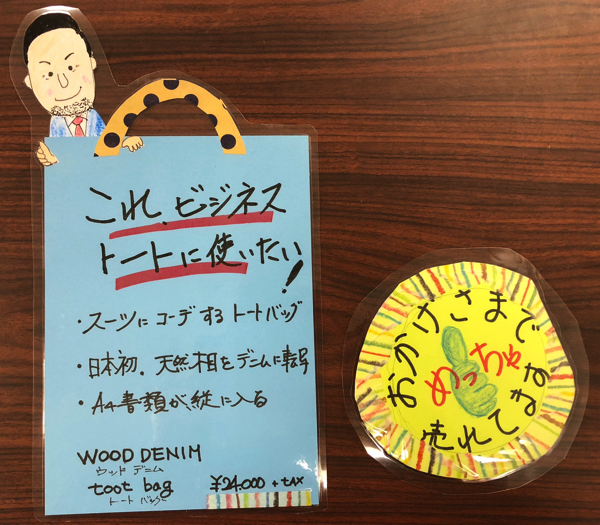 これ、ビジネス
トートに使いたい!
・スーツにコーデするトートバッグ
・日本初。天然相をデニムに転写
・A4書類が、縦に入る
WOOD DENIM
ウッド デニム
toot bag
トート バッグ
¥24,000 + tax
おかげさまで
めっちゃ
売れてます